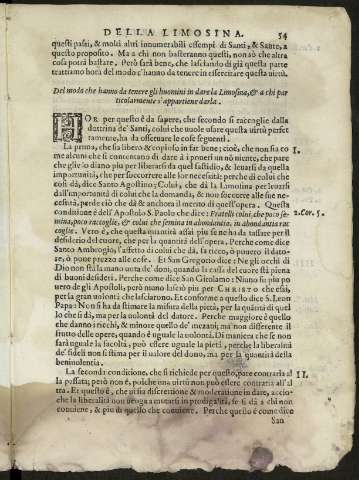 DELLA LIMOSINA. 54
questi passi, & molti altri innumerabili essempi di Santi, & Sante, a
questo proposito. Ma a chi non basteranno questi, non sò che altra
cosa potrà bastare. Però sarà bene, che lasciando di già questa parte
trattiamo hora del modo c'hanno da tenere in essercitare questa virtù.
Del modo che hanno da tenere gli huomini in dare la Limosina, & a chi par
ticolarmente s'appartiene darla.
HOR per questo è da sapere, che secondo si raccoglie dalla
dottrina de' Santi, colui che vuole usare questa virtù perfet
tamente, ha da osservare le cose seguenti.
La prima, che sia libero & copioso in far bene; cioè, che non sia co I.
me alcuni che si contentano di dare a i poveri un nò niente, che pare
che glie lo diano piu per liberarsi da quel fastidio, & levarsi da quella
importunità, che per soccorrere alle lor necessità: perche di colui che
così dà, dice Santo Agostino; Colui, che dà la Limosina per levarsi
dall'importunità di colui che la domanda, & non soccorre alle sue ne-
cessità, perde ciò che dà & anchora il merito di quest'opera. Questa
conditione è dell'Apostolo S. Paolo che dice: Fratelli colui, che poco se- 2. Cor. 5.
mina, poco raccoglie, & colui che semina in abondanza, in abondantia rac
coglie. Vero è, che questa quantità assai piu si ha da tassare per il
desiderio del cuore, che per la quantità dell'opera. Perche come dice
Santo Ambrogio, l'affetto di colui che dà, fa ricco, ò povero il dato-
re, ò pone prezzo alle cose. Et San Gregorio dice: Ne gli occhi di
Dio non stà la mano vota de' doni, quando la cassa del cuore stà piena
di buoni desideri. Perche come dice San Girolamo: Niuno fu piu po
vero de gli Apostoli, però niuno lasciò piu per CHRISTO che essi,
per la gran volontà che lasciarono. Et conforme a questo dice S. Leon
Papa: Non si ha da stimare la misura della pietà, per la quantità di quel
lo che si dà, ma per la volontà del datore. Perche maggiore è quello
che danno i ricchi, & minore quello de' mezani, ma non differente il
frutto delle opere, quando è uguale la volontà. Di maniera che se non
sarà uguale la facoltà, può essere uguale la pietà, perche la liberalità
de' fideli non si stima per il valore del dono, ma per la quantità della
benivolentia.
La seconda conditione, che si richiede per questo, pare contraria al II.
la passata; però non è, poiche una virtù non può essere contraria all'al
tra. Et questo è, che vi sia discretione & moderatione in dare, accio-
che la liberalità non venga a mutarsi in prodigalità, se si dà a chi non
conviene, & piu di quello che conviene. Perche questo è come dice
San